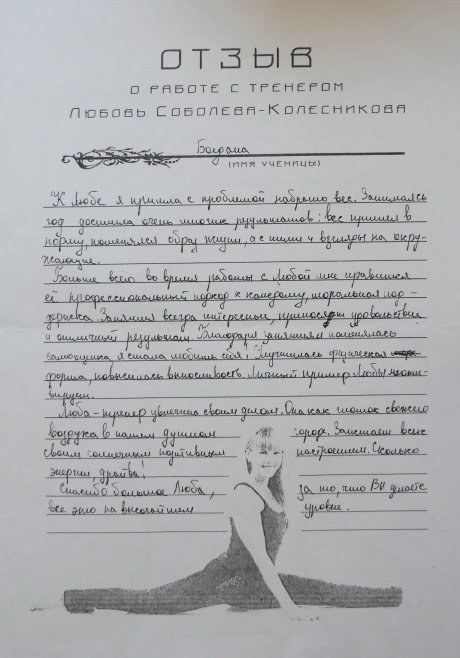 ОТЗЫВ
О РАБОТЕ С ТРЕНЕРОМ
ЛЮБОВЬ СОБОЛЕВА-КОЛЕСНИКОВА
Богдана
(ИМЯ УЧЕНИЦЫ)
К Любе я пришла с проблемой набрать вес. Занимаясь
год достигла очень многих результатов: вес пришел в
норму, поменялся образ жизни, а с ними и взгляды на окру-
жающие.
Больше всего во время работы с Любой мне нравился
её профессиональный подход к каждому, моральная под-
держка. Занятия всегда интересные, приносят удовольствие
и отличный результат. Благодаря занятиям поменялась
самооценка, я стала любить себя! Улучшилась физическая
форма, повысилась выносливость. Личный пример Любы мотиви-
вирует.
Люба - тренер увлечена своим делом. Она как глоток свежего
воздуха в нашем душном городе. Зажигает всех
своим солнечным позитивным настроением. Сколько
энергии, драйва!
Спасибо большое Люба, за то, что Вы делаете
все это на высочайшем уровне.